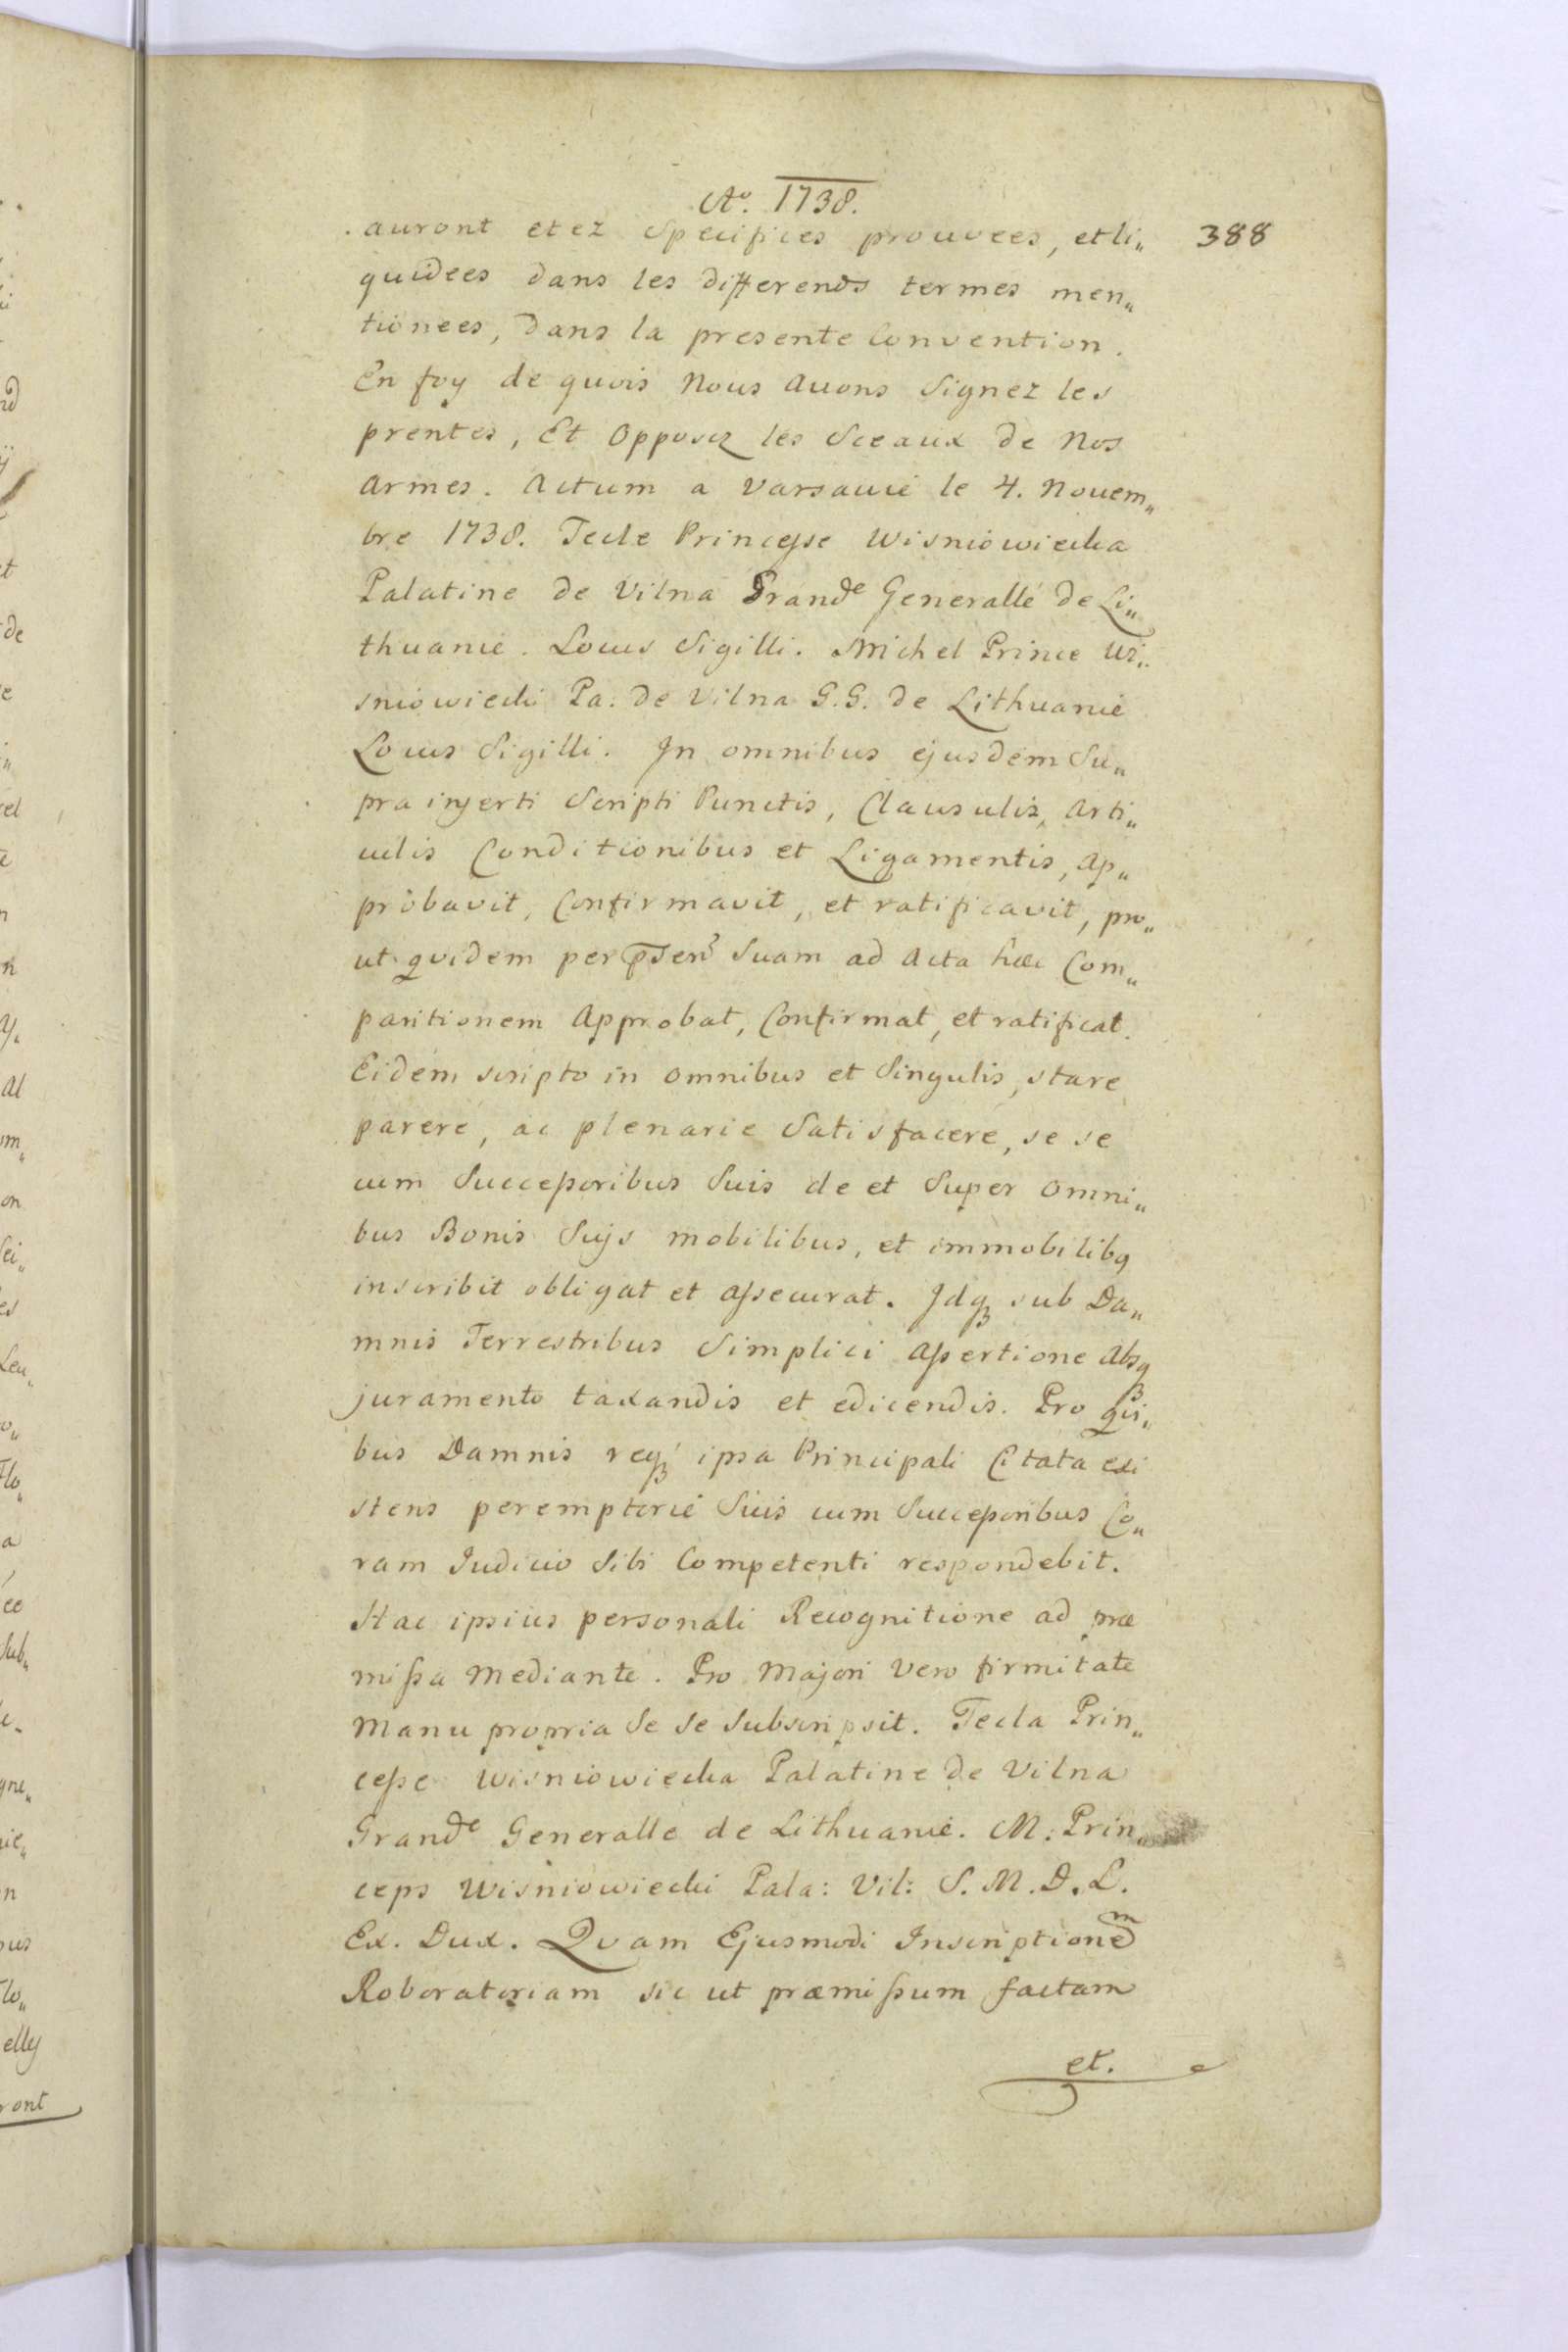 Ao. 1738.
auront etez Specifices prouvees, et li„ 388
quidees dans les differends termes men„
tionees, dans la presente Convention.
En foy de quois Nous avons Signez les
prentes, Et Opposez les Sceaux de Nos
Armes. Actum a Varsavie le 4. Novem„
bre 1738. Tecle Princesse Wisniowiecka
Palatine de Vilna Grande Generalle de Li„
thuanie. Locus Sigilli. Michel Prince Wi„
sniowiecki Pa: de Vilna G.G. de Lithuanie
Locus Sigilli. In omnibus ejusdem Su„
pra inserti Scripti Punctis, Clausulis, Arti„
culis Conditionibus et Ligamentis, Ap„
probavit, Confirmavit, et ratificavit, pro„
ut quidem per psen Suam ad Acta hæc Com„
paritionem Approbat, Confirmat, et ratificat.
Eidem scripto in omnibus et Singulis, stare
parere, ac plenarie Satisfacere, se se
cum Successoribus Suis de et Super omni„
bus Bonis Suis mobilibus, et immobilibq
inscribit obligat et assecurat. Idq3 sub Da„
mnis Terrestribus Simplici Assertione Absq3
juramento taxandis et edicendis. Pro qui„
bus Damnis req3 ipsa Principali Citata exi
stens peremptorie Suis cum Successoribus Co„
ram Iudicio Sibi Competenti respondebit.
Hac ipsius personali Recognitione ad præ
missa Mediante. Pro Majori vero firmitate
Manu propria Se Se Subscripsit. Tecla Prin„
cesse Wisniowiecka Palatine de Vilna
Grande Generalle de Lithuanie. M: Prin„
ceps Wisniowiecki Pala: Vil: S. M. D. L.
Ex. Dux. Quam Ejusmodi Inscriptionem
Roboratoriam sic ut præmissum factam
et.